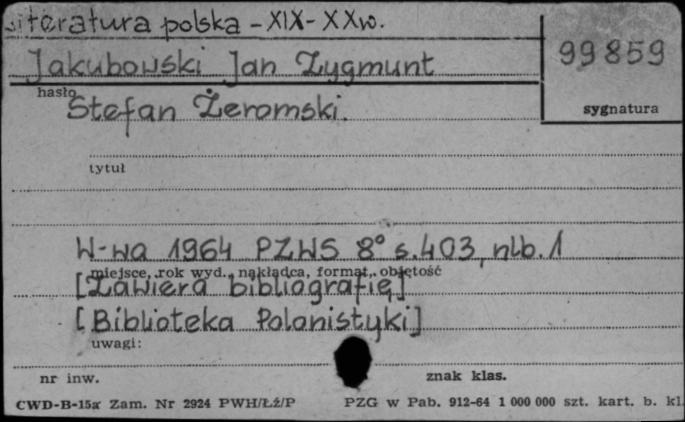 Literatura polska - XIX - XX w.
99859
Jakubowski Jan Zygmunt
hasło
Stefan Żeromski.
sygnatura
tytuł
W-wa 1964 PZWS 8° s.403, nlb. 1
miejsce, rok wyd., nakładca, format, objętość
[Zawiera bibliografię]
[Biblioteka Polonistyki]
uwagi:
nr inw.
znak klas.
CWD-B-15a Zam. Nr 2924 PWH/Łź/P
PZG w Pab. 912-64 1 000 000 szt. kart. b. kl.